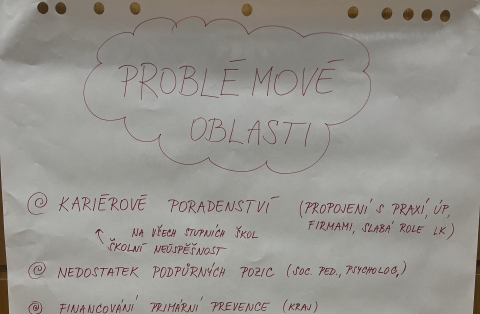 PROBLÉMOVÉ
OBLASTI
@ KARIÉROVÉ PORADENSTVÍ (PROPOJENÍ S PRAXÍ, ÚP,
FIRMAMI, SLABÁ ROLE LK)
↖ NA VŠECH STUPNÍCH ŠKOL
ŠKOLNÍ NEÚSPĚŠNOST
@ NEDOSTATEK PODPŮRNÝCH POZIC (SOC. PED., PSYCHOLOG,)
@ FINANCOVÁNÍ PRIMÁRNÍ PREVENCE (KRAJ)